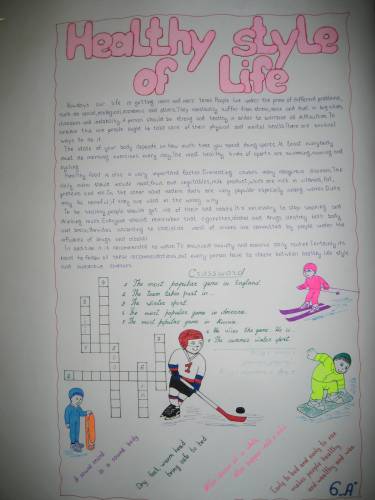 Healthy style
of Life
Nowdays our life is getting more and more tense. People live under the press of different problems,
such as social, ecological, economic and others. They constantly suffer from stress, noise and dust in big cities,
diseases and instability. A person should be strong and healthy in order to overcome all difficulties. To
achieve this aim people ought to take care of their physical and mental health. There are several
ways to do it.
The state of your body depends on how much time you spend doing sports. At least everybody
must do morning exercises every day. The most healthy kinds of sports are swimming, running and
cycling.
Healthy food is also a very important factor. Overeating causes many dangerous diseases. The
daily menu should include meat, fruit and vegetables, milk products, which are rich in vitamins, fats,
proteins and etc. On the other hand modern diets are very popular especially among women. Diets
may be harmful, if they are used in the wrong way.
To be healthy, people should get rid of their bad habits. It's necessary to stop smoking and
drinking much. Everyone should remember that cigarettes, alcohol and drugs destroy both body
and brain. Besides according to statistics most of crimes are committed by people under the
influence of drugs and alcohol.
In addition it is recommended to watch TV
have to follow all these recommendations, but every person have to choose between healthy life style
and numerous illnesses.
Crossword
1 The most popular game in England.
2 The team takes part in ...
3 The winter sport.
4 The most popular game in America.
5 The most popular game in Russia.
6 He wins the game. He is ...
7 The summer water sport.
A sound mind
in a sound body
Dry feet, warm head
bring safe to bed
Early to bed and early to rise
makes people healthy
and wealthy and wise
6 "A"